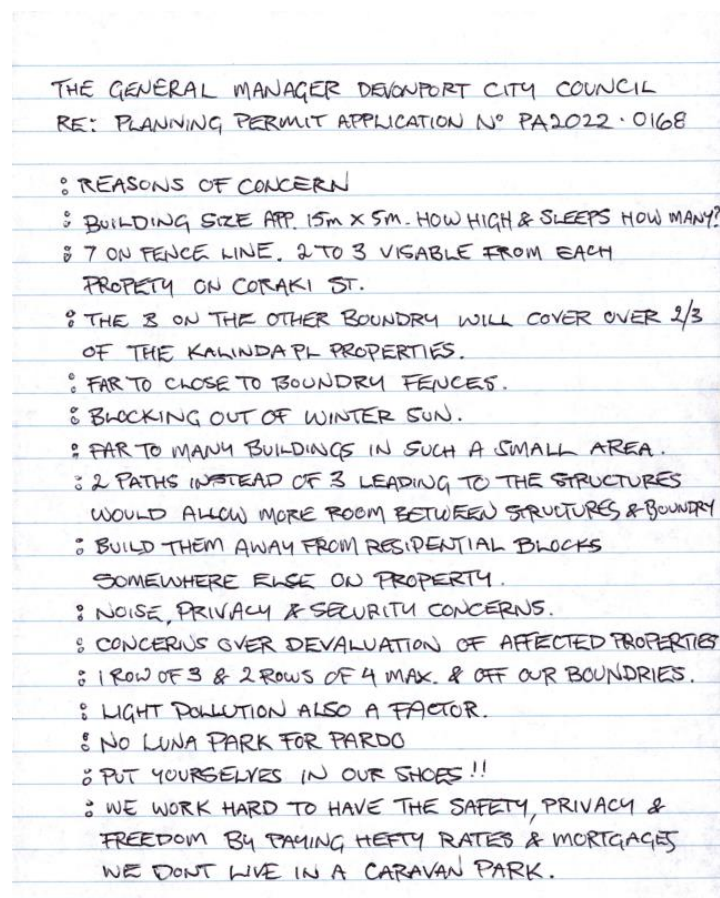 THE GENERAL MANAGER DEVONPORT CITY COUNCIL
RE: PLANNING PERMIT APPLICATION Nº PA2022·0168
: REASONS OF CONCERN
: BUILDING SIZE APP. 15m X 5m. HOW HIGH & SLEEPS HOW MANY?
: 7 ON FENCE LINE. 2 TO 3 VISABLE FROM EACH
PROPETY ON CORAKI ST.
: THE 3 ON THE OTHER BOUNDRY WILL COVER OVER 2/3
OF THE KALINDA PL PROPERTIES.
: FAR TO CLOSE TO BOUNDRY FENCES.
: BLOCKING OUT OF WINTER SUN.
: FAR TO MANY BUILDINGS IN SUCH A SMALL AREA.
: 2 PATHS INSTEAD OF 3 LEADING TO THE STRUCTURES
WOULD ALLOW MORE ROOM BETWEEN STRUCTURES & BOUNDRY
: BUILD THEM AWAY FROM RESIDENTIAL BLOCKS
SOMEWHERE ELSE ON PROPERTY.
: NOISE, PRIVACY & SECURITY CONCERNS.
: CONCERNS OVER DEVALUATION OF AFFECTED PROPERTIES
: 1 ROW OF 3 & 2 ROWS OF 4 MAX. & OFF OUR BOUNDRIES.
: LIGHT POLLUTION ALSO A FACTOR.
: NO LUNA PARK FOR PARDO
: PUT YOURSELVES IN OUR SHOES!!
: WE WORK HARD TO HAVE THE SAFETY, PRIVACY &
FREEDOM BY PAYING HEFTY RATES & MORTGAGES
WE DONT LIVE IN A CARAVAN PARK.